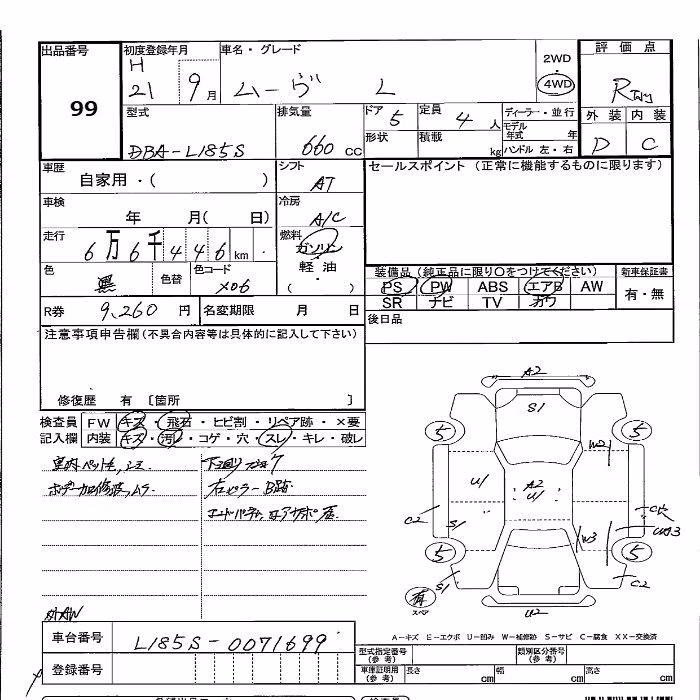 出品番号
99
初度登録年月
H
21 9月
車名・グレード
ムーヴ L
2WD
4WD
評価点
R
外装 内装
D C
型式
DBA-L185S
排気量
660 CC
ドア 5
形状
定員 4 人
積載 kg
ディーラー・並行
モデル年式 年
ハンドル 左・右
車歴
自家用・( )
シフト
AT
セールスポイント(正常に機能するものに限ります)
車検
年 月( 日)
冷房
A/C
走行
6万6千446km
燃料
ガソリン
軽油
(・)
色
黒
色替
色コード
X06
装備品(純正品に限り〇をつけてください)
PS PW ABS エアB AW
SR ナビ TV カワ
新車保証書
有・無
R券 9,260円
名変期限 月 日
後日品
注意事項申告欄(不具合内容等は具体的に記入して下さい)
修復歴 有〔箇所 〕
検査員
記入欄
FW キズ・飛石・ヒビ割・リペア跡・×要
内装 キズ・汚レ・コゲ・穴・スレ・キレ・破レ
A2
S1
5 5
W2
U1
A2
U1
C2
S1
W3
5 5
S1
C2
有
スペア
U2
A-キズ E-エクボ U-凹み W-補修跡 S-サビ C-腐食 XX-交換済
車台番号 L185S-0071699
登録番号
型式指定番号
(参考)
類別区分番号
(参考)
車庫証明用
(参考)
長さ cm
幅 cm
高さ cm